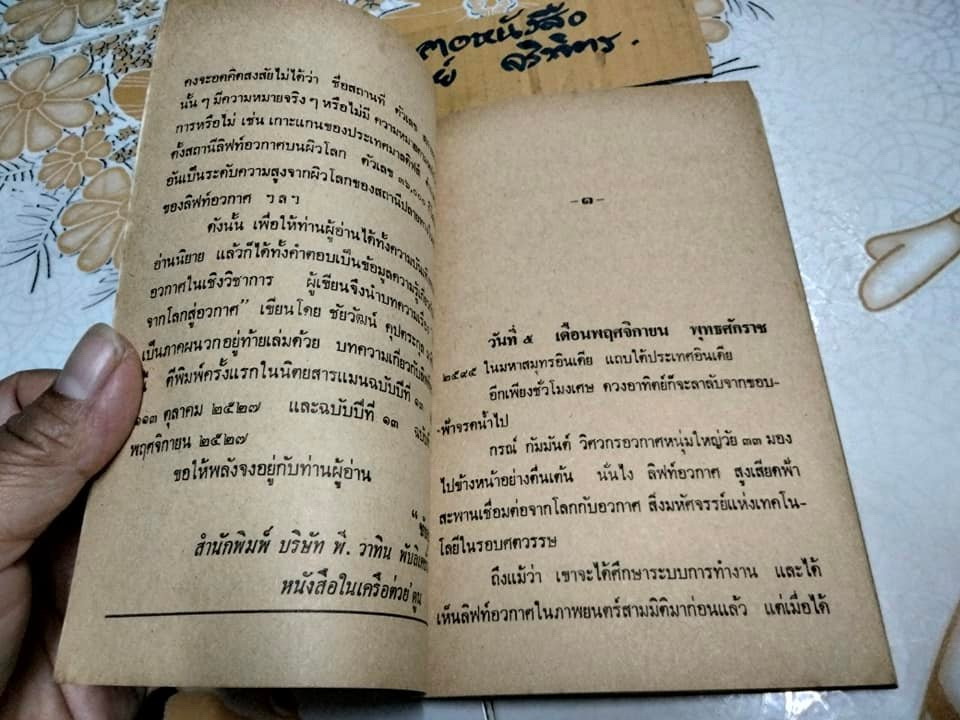 ฅอหนังสือ
คงจะอดคิดสงสัยไม่ได้ว่า ชื่อสถานที่ ตัวเลข
นั้น ๆ มีความหมายจริง ๆ หรือไม่มี ความหมาย
การหรือไม่ เช่น เกาะแกนของประเทศมาลดิฟส์
ตั้งสถานีลิฟท์อวกาศบนผิวโลก ตัวเลข ๓๖,๐๐๐
อันเป็นระดับความสูงจากผิวโลกของสถานีปลายทาง
ของลิฟท์อวกาศ ฯลฯ
ดังนั้น เพื่อให้ท่านผู้อ่านได้ทั้งความบันเทิง
อ่านนิยาย แล้วก็ได้ทั้งคำตอบเป็นข้อมูลความรู้เกี่ยวกับ
อวกาศในเชิงวิชาการ ผู้เขียนจึงนำบทความเรื่อง
จากโลกสู่อวกาศ" เขียนโดย ชัยวัฒน์ คุประตกุล
เป็นภาคผนวกอยู่ท้ายเล่มด้วย บทความเกี่ยวกับ
ตีพิมพ์ครั้งแรกในนิตยสารแมนฉบับปีที่ ๑๓
๑๑๓ ตุลาคม ๒๕๒๗ และฉบับปีที่ ๑๓
พฤศจิกายน ๒๕๒๗
ขอให้พลังจงอยู่กับท่านผู้อ่าน
สำนักพิมพ์ บริษัท พี. วาทิน พับลิเคชั่น
หนังสือในเครือต่วย' ตูน
-๑-
วันที่ ๕ เดือนพฤศจิกายน พุทธศักราช
๒๕๙๕ ในมหาสมุทรอินเดีย แถบใต้ประเทศอินเดีย
อีกเพียงชั่วโมงเศษ ดวงอาทิตย์ก็จะลาลับจากขอบ-
ฟ้าจรดน้ำไป
กรณ์ กัมมันต์ วิศวกรอวกาศหนุ่มใหญ่วัย ๓๓ มอง
ไปข้างหน้าอย่างตื่นเต้น นั่นไง ลิฟท์อวกาศ สูงเสียดฟ้า
สะพานเชื่อมต่อจากโลกกับอวกาศ สิ่งมหัศจรรย์แห่งเทคโน-
โลยีในรอบศตวรรษ
ถึงแม้ว่า เขาจะได้ศึกษาระบบการทำงาน และได้
เห็นลิฟท์อวกาศในภาพยนตร์สามมิติมาก่อนแล้ว แต่เมื่อได้